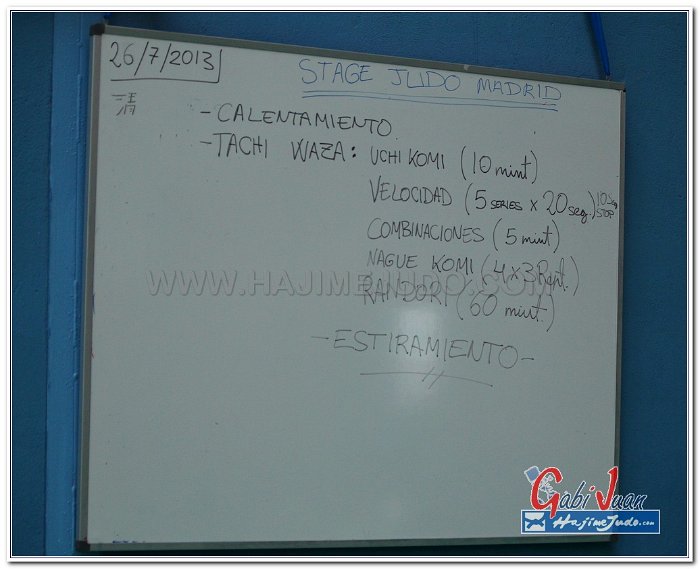 26/7/2013
STAGE JUDO MADRID
- CALENTAMIENTO
- TACHI WAZA: UCHI KOMI (10 mint)
VELOCIDAD (5 SERIES x 20 seg.) 10 Seg STOP
COMBINACIONES (5 mint)
NAGUE KOMI (4 x 3 Rept.)
WWW.HAJIMEJUDO.COM
RANDORI (60 mint.)
- ESTIRAMIENTO -
Gabi Juan
HajimeJudo.com